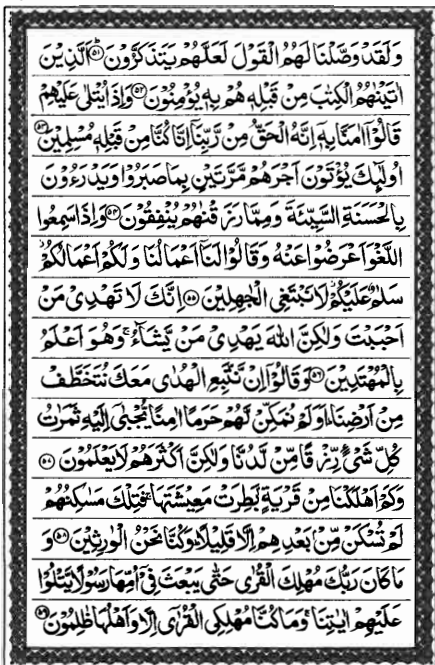 وَلَقَدْ وَصَّلْنَا لَهُمُ الْقَوْلَ لَعَلَّهُمْ يَتَذَكَّرُوْنَ ۵۱ اَلَّذِيْنَ
اٰتَيْنٰهُمُ الْكِتٰبَ مِنْ قَبْلِهٖ هُمْ بِهٖ يُؤْمِنُوْنَ ۵۲ وَاِذَا يُتْلٰى عَلَيْهِمْ
قَالُوْۤا اٰمَنَّا بِهٖۤ اِنَّهُ الْحَقُّ مِنْ رَّبِّنَاۤ اِنَّا كُنَّا مِنْ قَبْلِهٖ مُسْلِمِيْنَ ۵۳
اُولٰٓئِكَ يُؤْتَوْنَ اَجْرَهُمْ مَّرَّتَيْنِ بِمَا صَبَرُوْا وَيَدْرَءُوْنَ
بِالْحَسَنَةِ السَّيِّئَةَ وَمِمَّا رَزَقْنٰهُمْ يُنْفِقُوْنَ ۵۴ وَاِذَا سَمِعُوا
اللَّغْوَ اَعْرَضُوْا عَنْهُ وَقَالُوْا لَنَاۤ اَعْمَالُنَا وَلَكُمْ اَعْمَالُكُمْ
سَلٰمٌ عَلَيْكُمْ لَا نَبْتَغِى الْجٰهِلِيْنَ ۵۵ اِنَّكَ لَا تَهْدِىْ مَنْ
اَحْبَبْتَ وَلٰكِنَّ اللّٰهَ يَهْدِىْ مَنْ يَّشَآءُ ۚ وَهُوَ اَعْلَمُ
بِالْمُهْتَدِيْنَ ۵۶ وَقَالُوْۤا اِنْ نَّتَّبِعِ الْهُدٰى مَعَكَ نُتَخَطَّفْ
مِنْ اَرْضِنَا ؕ اَوَلَمْ نُمَكِّنْ لَّهُمْ حَرَمًا اٰمِنًا يُّجْبٰٓى اِلَيْهِ ثَمَرٰتُ
كُلِّ شَىْءٍ رِّزْقًا مِّنْ لَّدُنَّا وَلٰكِنَّ اَكْثَرَهُمْ لَا يَعْلَمُوْنَ ۵۷
وَكَمْ اَهْلَكْنَا مِنْ قَرْيَةٍۭ بَطِرَتْ مَعِيْشَتَهَا ۚ فَتِلْكَ مَسٰكِنُهُمْ
لَمْ تُسْكَنْ مِّنْۢ بَعْدِهِمْ اِلَّا قَلِيْلًا ؕ وَكُنَّا نَحْنُ الْوٰرِثِيْنَ ۵۸ وَ
مَا كَانَ رَبُّكَ مُهْلِكَ الْقُرٰى حَتّٰى يَبْعَثَ فِىْۤ اُمِّهَا رَسُوْلًا يَّتْلُوْا
عَلَيْهِمْ اٰيٰتِنَا ۚ وَمَا كُنَّا مُهْلِكِى الْقُرٰٓى اِلَّا وَاَهْلُهَا ظٰلِمُوْنَ ۵۹